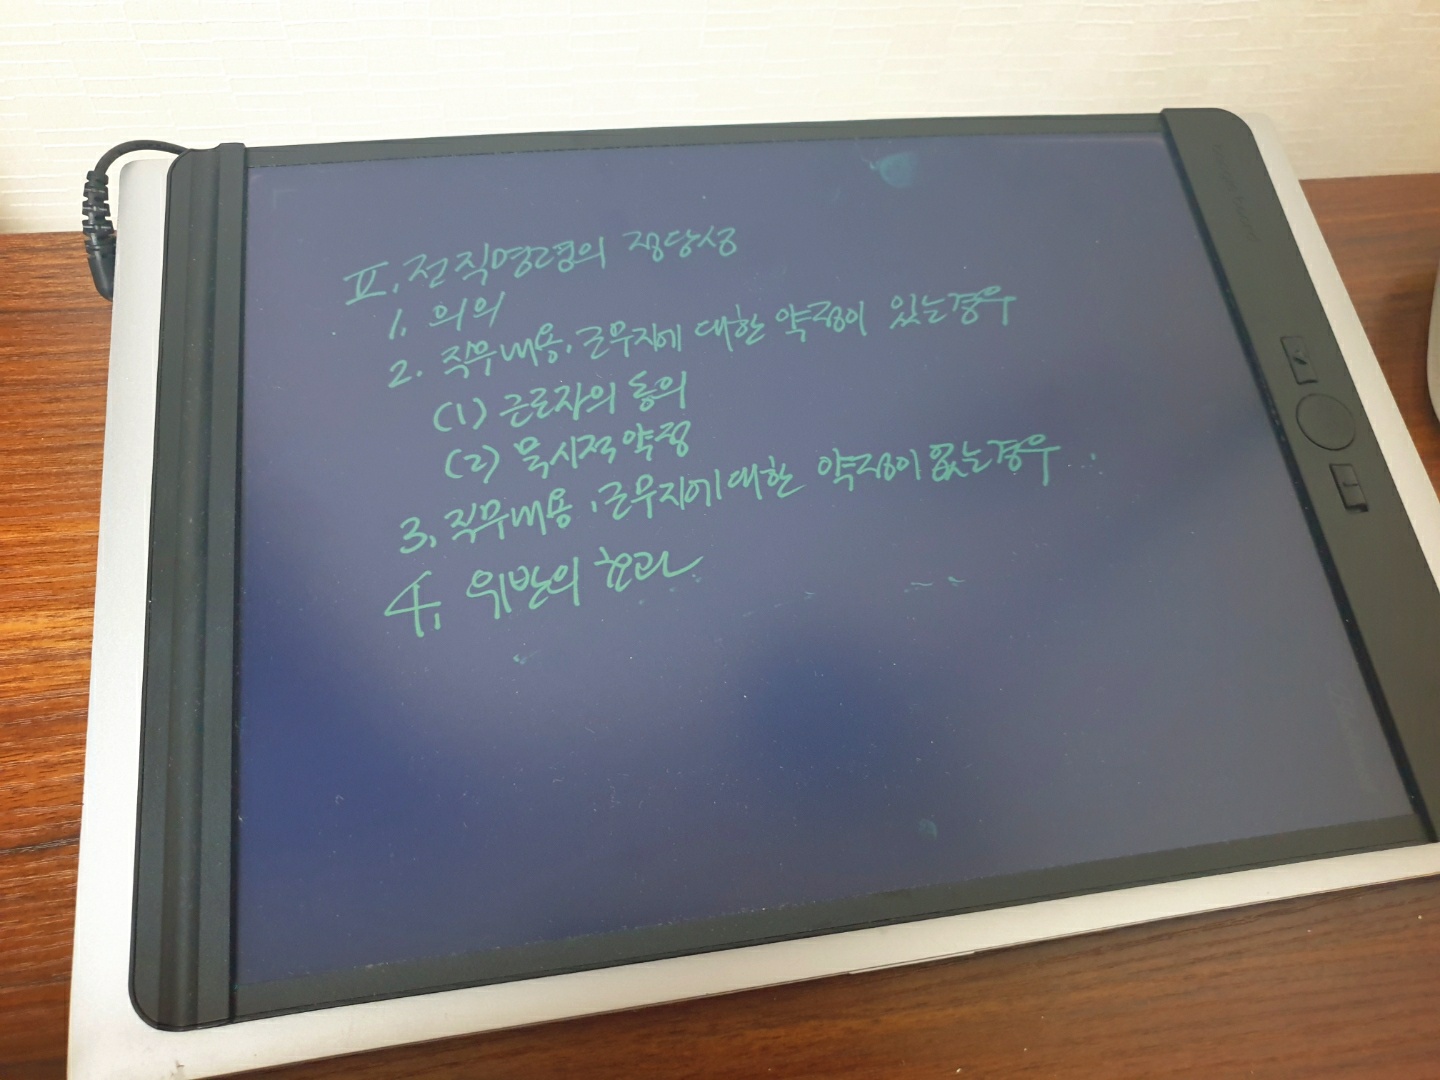 Ⅱ. 전직명령의 정당성
1. 의의
2. 직무내용·근무지에 대한 약정이 있는경우
(1) 근로자의 동의
(2) 묵시적 약정
3. 직무내용·근무지에 대한 약정이 없는경우
4. 위반의 효과